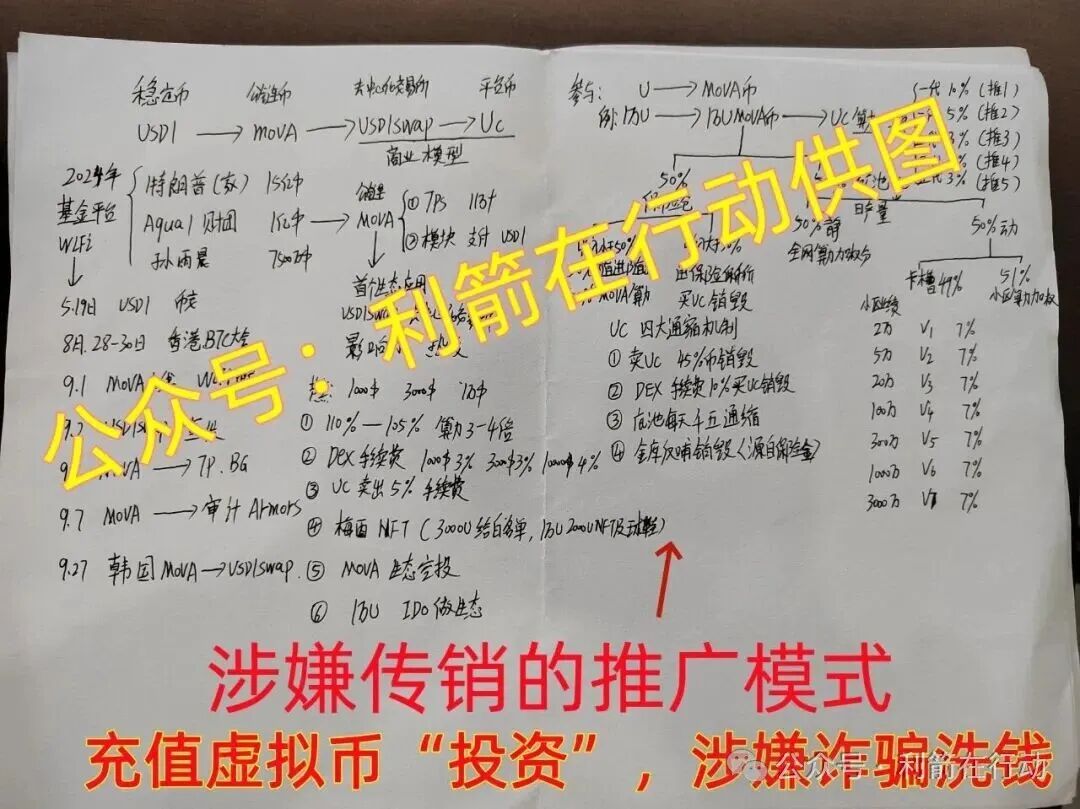 稳定币 储运币 去中心化交易所 平台币
USD1 → MOVA → USD1Swap → UC
商业模型
2024年
基金平台
WLFi
特朗普(家) 15亿$
Aqua1 财团 1亿$
孙雨晨 7500万$
MOVA
① TPS 11万+
② 模块 支付 USD1
首个生态应用
5.19日 USD1
8月.28-30日 香港BTC大会
影响
9.1 MOVA
1000$ 3000$ 1万$
① 110%—105% 算力3-4倍
MOVA → TP.BG
② DEX手续费 1000$3% 3000$3% 10000$4%
③ UC卖出5%手续费
9.7 MOVA → 审计 Armors
④ 梅西 NFT (3000U给白名单, 1万U 2000UNFT及球鞋)
9.27 韩国 MOVA → USD1Swap.
⑤ MOVA 生态空投
⑥ 1万U IDO做生态
参与: U → MOVA币
例:1万U → 1万U MOVA币 → UC
一代 10% (推1)
5% (推2)
3% (推3)
(推4)
3% (推5)
50%
日产量
50%静
全网算力
50%动
卡槽49%
51%
小区算力加权
进保险
MOVA算
买UC销毁
UC 四大通缩机制
① 卖UC 45%币销毁
② DEX 手续费10%买UC销毁
③ 底池每天千五通缩
④ 金库反哺销毁(源自保险金)
小区业绩
2万 V1 7%
5万 V2 7%
20万 V3 7%
100万 V4 7%
300万 V5 7%
1000万 V6 7%
3000万 7%
公众号：利箭在行动供图
涉嫌传销的推广模式
充值虚拟币“投资”，涉嫌诈骗洗钱
公众号·利箭在行动